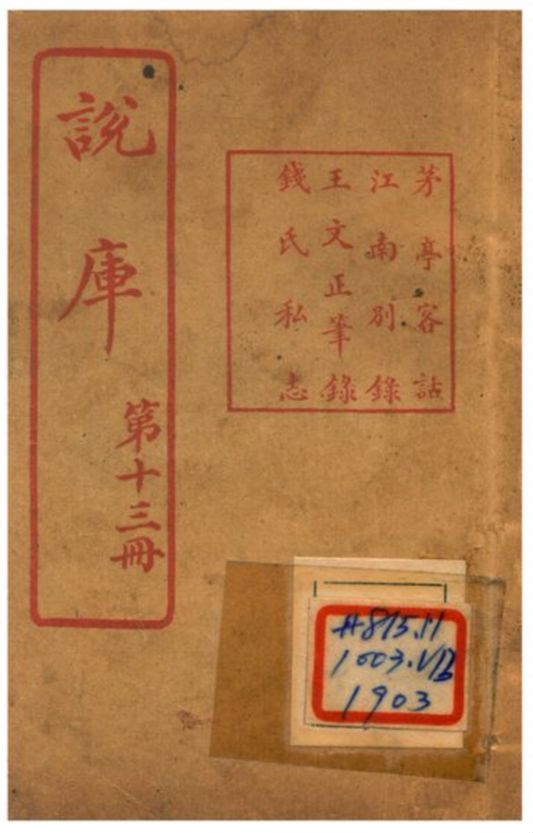 說庫
第十三冊
茅亭客話
江南別錄
王文正筆錄
錢氏私志
#815.11
1003.V13
1903